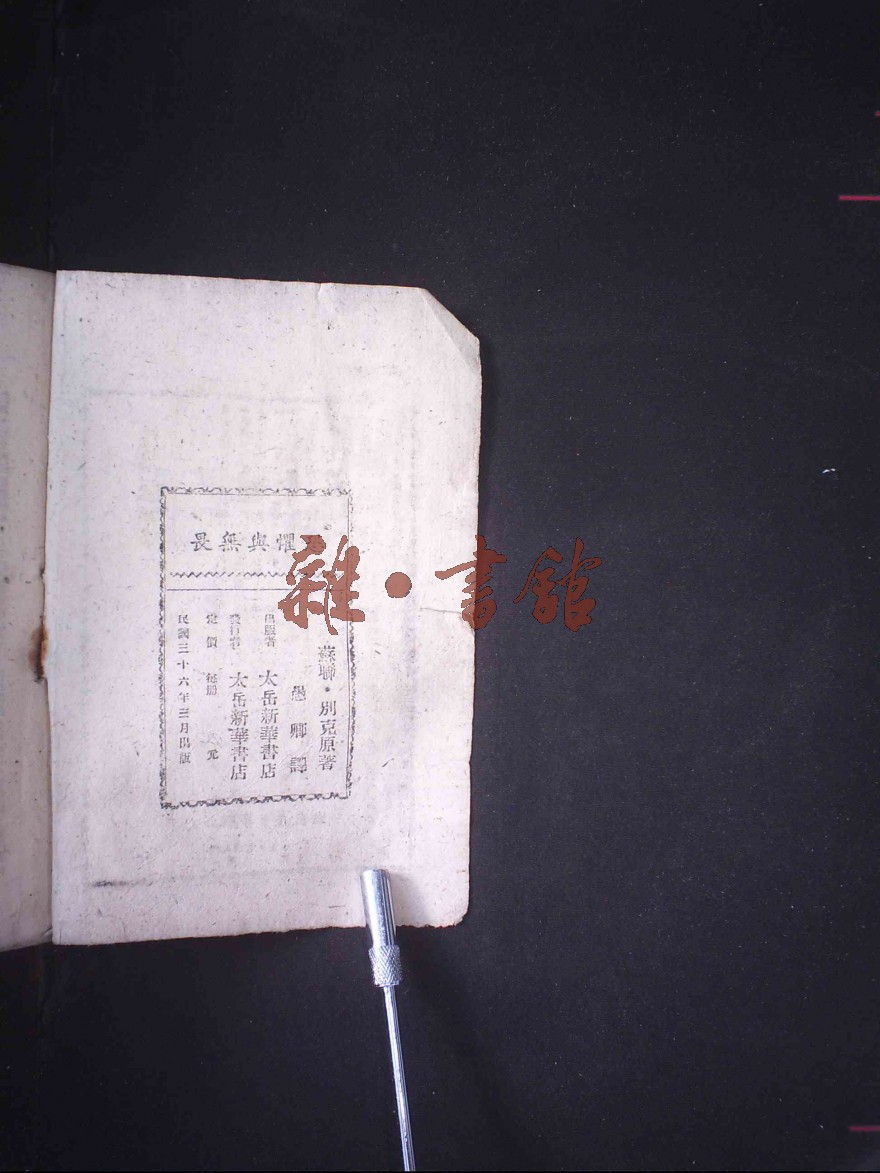 懼與無畏
蘇聯·別克原著
愚卿譯
出版者 太岳新華書店
發行者 太岳新華書店
定價 每册 元
民國三十六年三月出版
雜·書館